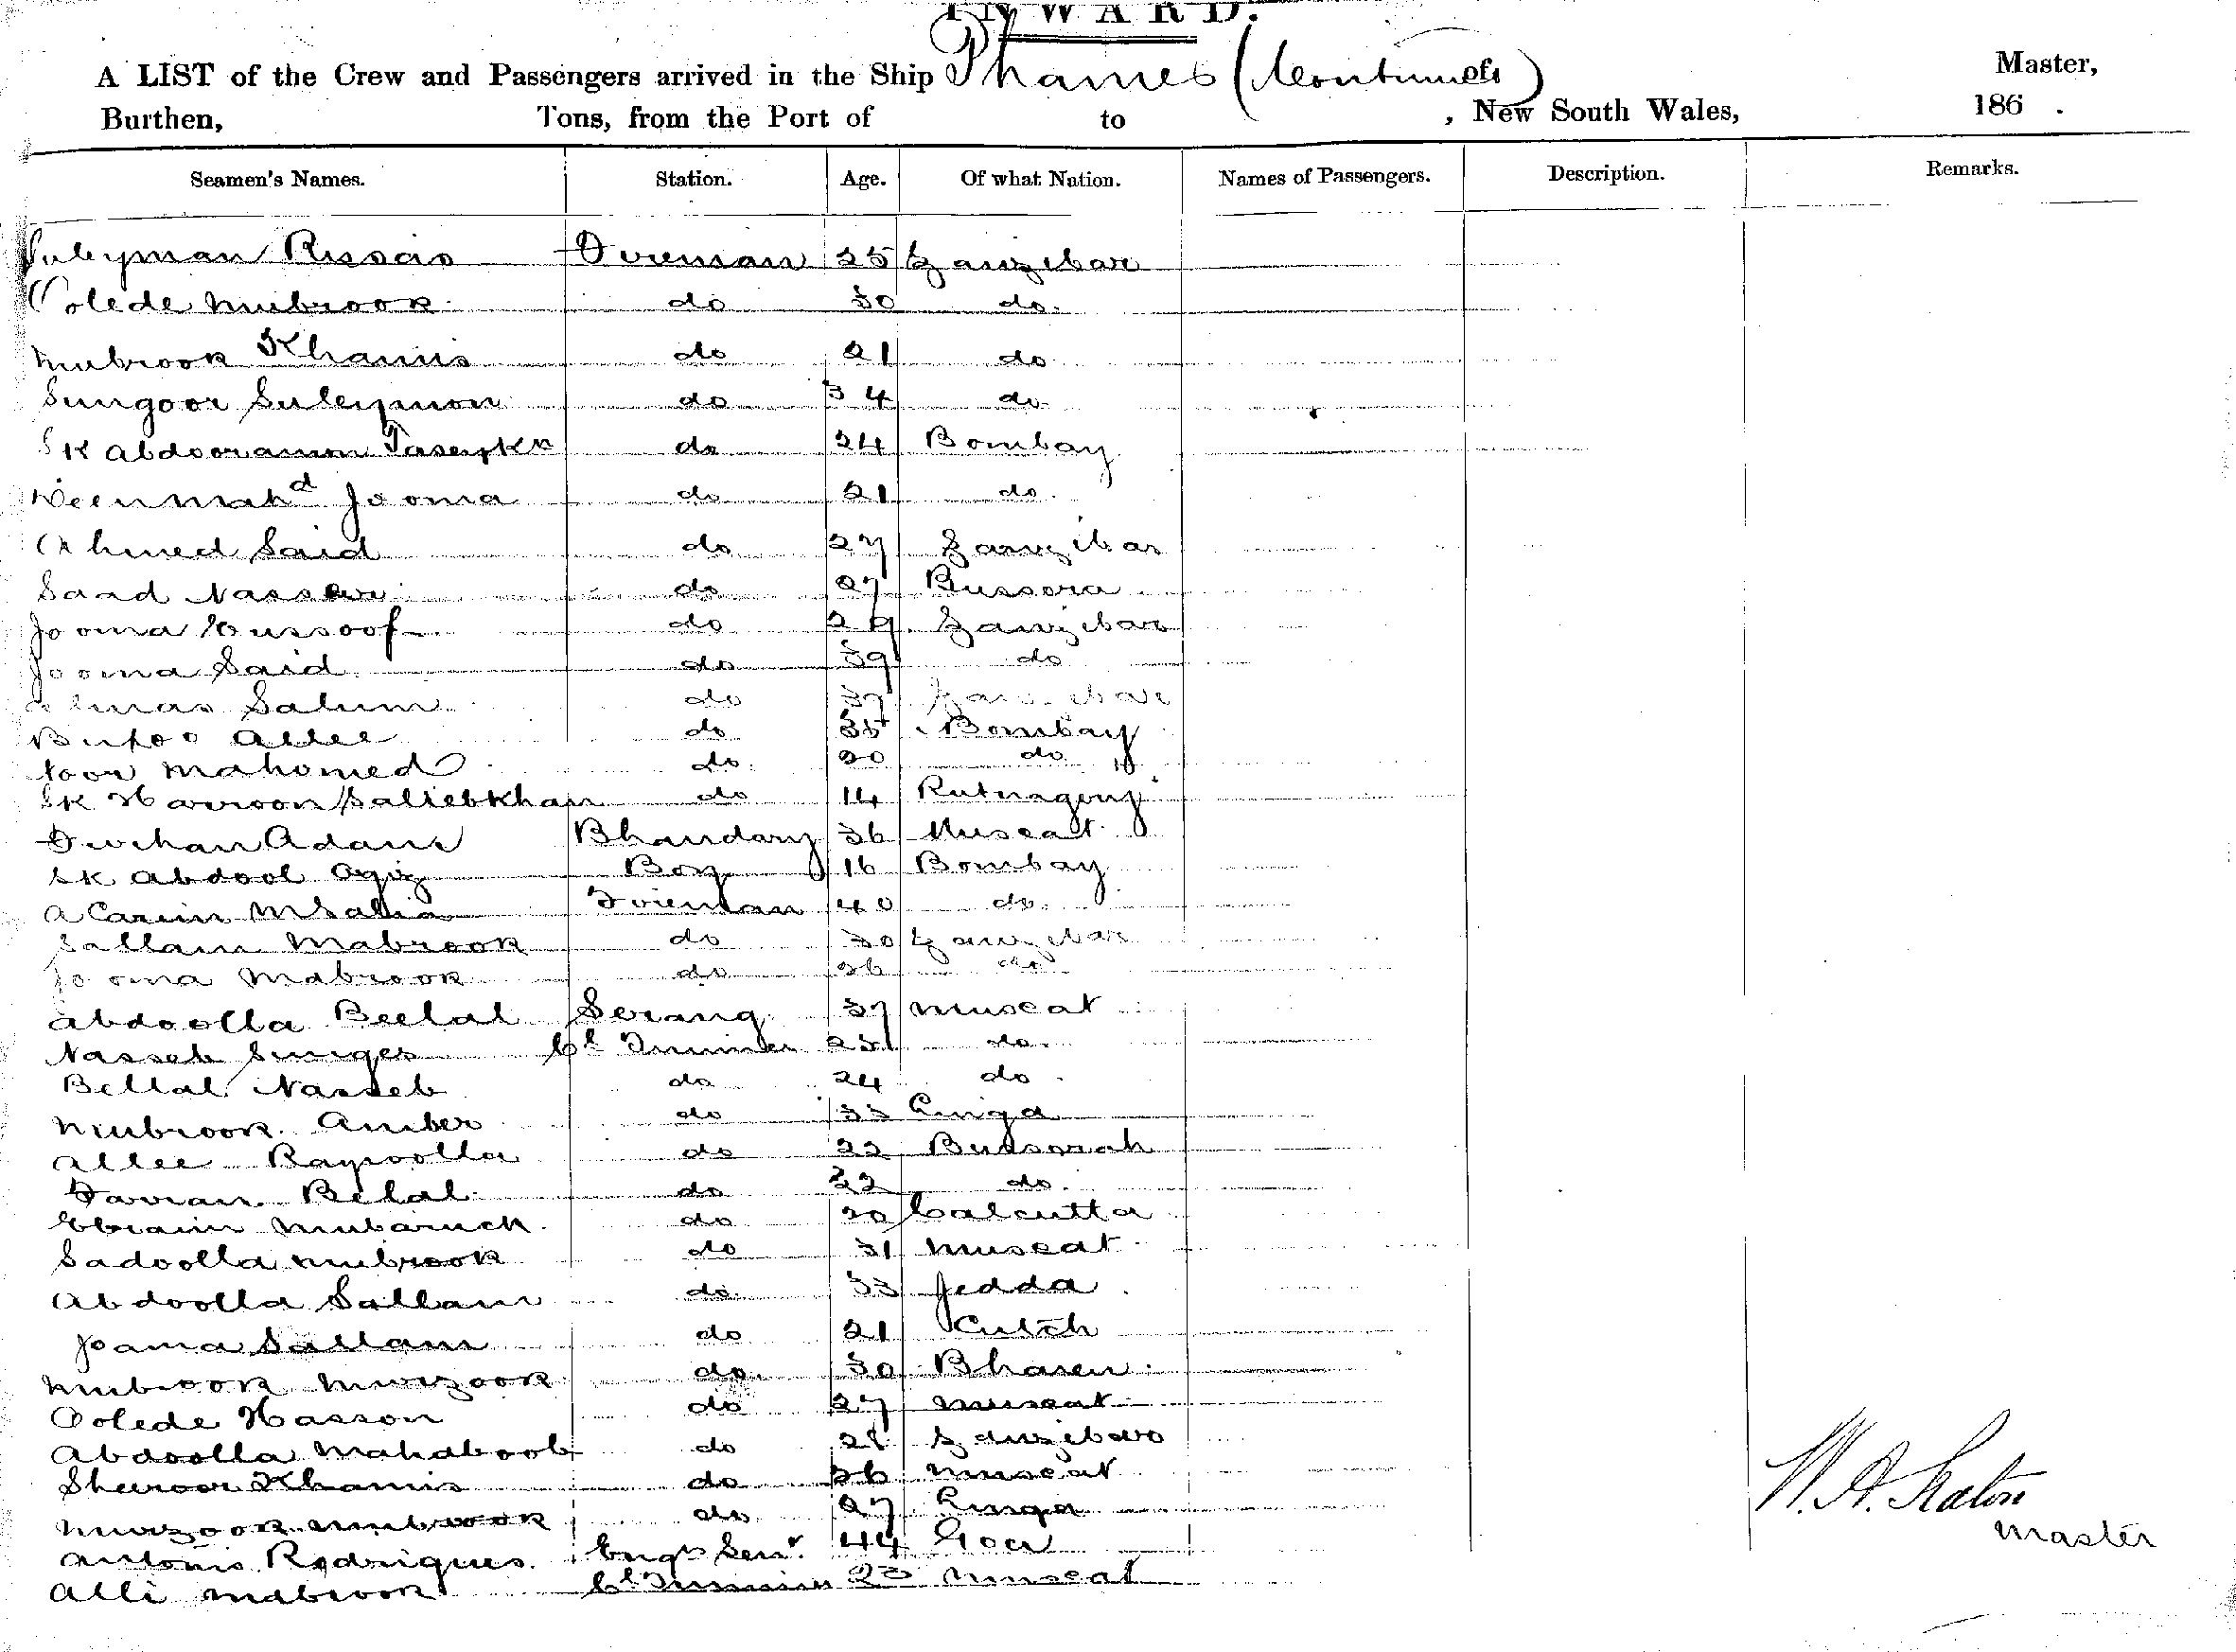 INWARD.
A LIST of the Crew and Passengers arrived in the Ship Thames (Continued) Master,
Burthen, Tons, from the Port of to , New South Wales, 186 .
Seamen's Names. Station. Age. Of what Nation. Names of Passengers. Description. Remarks.
Suleyman Fireman 25 Zanzibar
Mubrook do 30 do.
Mubrook Khamis do 21 do
Sungoor Suleymon do 34 do
Sk Abdooramon do 24 Bombay
Jooma do 21 do.
Ahmed Said do 27 Zanzibar
Saad Nasser do 27 Bussora
Jooma Yussoof do 29 Zanzibar
Jooma Said do 39 do
Almas Salum do 37 Zanzibar
Allee do 35 Bombay
Noor Mahomed do. 20 do
Sk Haroon Saliebkhan do 14 Rutnagery
Adam Bhandary 36 Muscat
Sk Abdool Boy 16 Bombay
A Carim Fireman 40 do.
Sallam Mabrook do 30 Zanzibar
Jooma Mabrook do 26 do
Abdoolla Beelal Serang 37 Muscat
Nasseb Cl Trimmer 25 do
Bellal Nasseb do 24 do.
Mubrook Amber do 33 Linga
Allee do 22 Bussorah
Belal do 22 do.
Ebraim Mubaruck do 20 Calcutta
Sadoolla Mubrook do 31 Muscat
Abdoolla Sallam do 33 Jedda
Joama Sallam do 21 Cutch
Mubrook Murzook do 30 Bhasen
Oolede Hasson do 27 Muscat
Abdoolla Mahaboob do 28 Zanzibar
Sharoor Khamis do 26 Muscat
Murzook Mubrook do 27 Linga
Antonio Rodrigues Engrs Servt 44 Goa
Alli Mabrook Cl Trimmer 22 Muscat
W. A. Seaton
Master